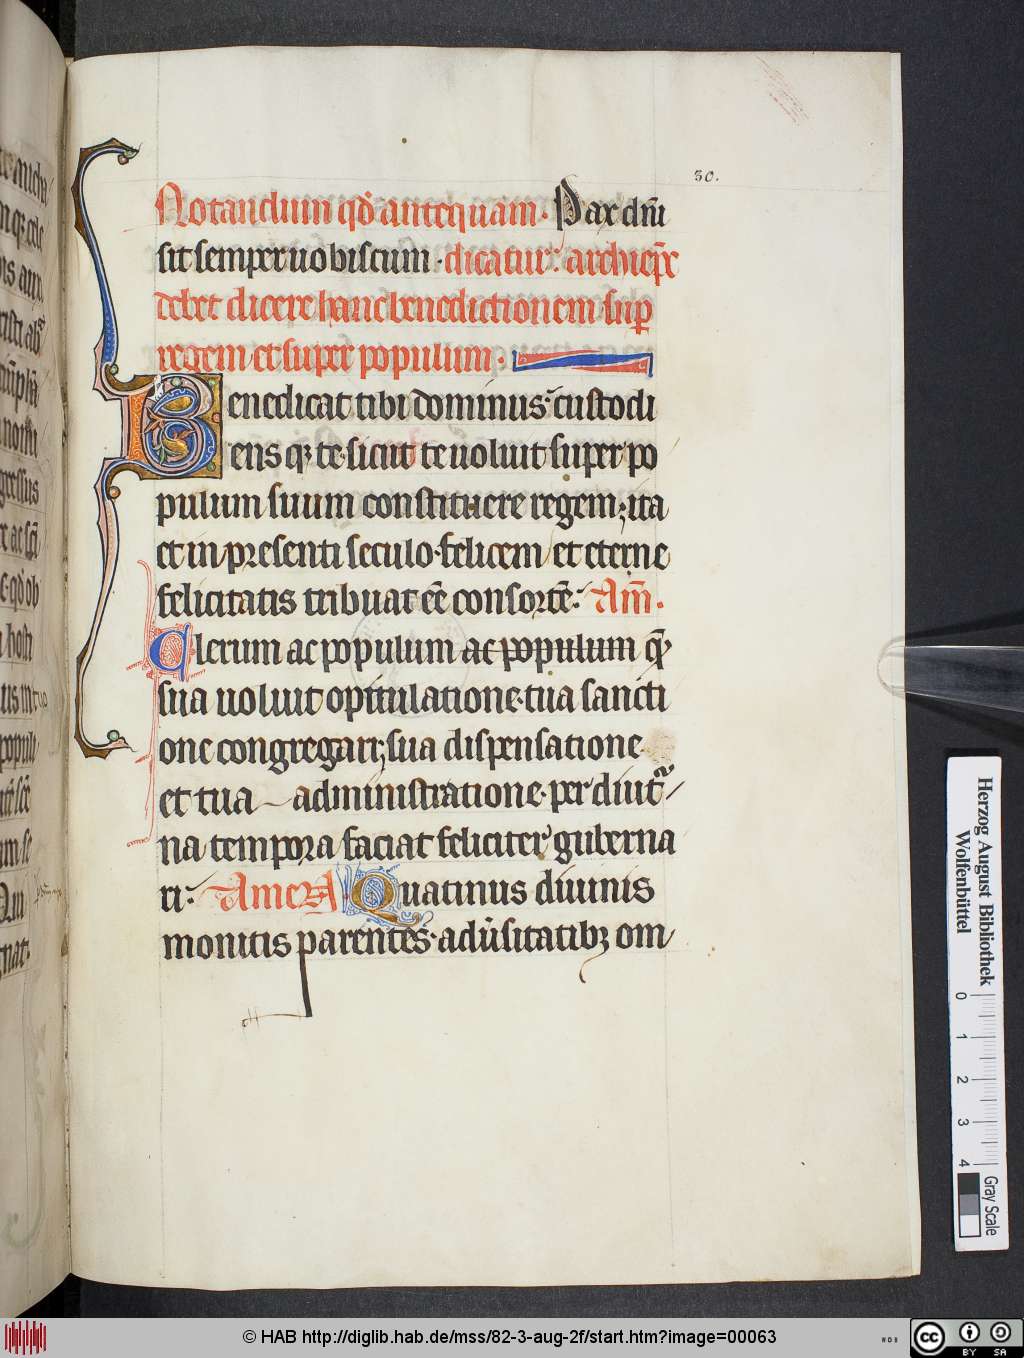 30.
Notandum qd̄ antequam· Pax dn̄i
sit semper uobiscum · dicatur: archiep̄c
debet dicere hanc benedictionem sup̄
regem et super populum·
Benedicat tibi dominus: custodi
ens qꝫ te· sicut te uoluit super po
pulum suum constituere regem; ita
et in presenti seculo· felicem et eterne
felicitatis tribuat eē consorte᷒: Am̄·
Clerum ac populum ac populum quē
sua uoluit opitulatione· tua sancti
one congregari; sua dispensatione
et tua administratione· per diut᷑/
na tempora faciat feliciter guberna
ri: Amen Quatinus diuinis
monitis parentes· aduersitatibꝫ om
Herzog August Bibliothek
Wolfenbüttel
0 1 2 3 4
Gray Scale
© HAB http://diglib.hab.de/mss/82-3-aug-2f/start.htm?image=00063
WDB
cc BY SA